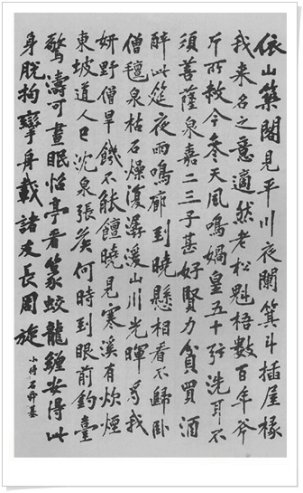 依山築閣見平川夜闌箕斗插屋椽
我来名之意適然老松魁梧數百年斧
斤所赦今参天風鳴媧皇五十弦洗耳不
須菩薩泉嘉二三子甚好賢力貧買酒
醉此筵夜雨鳴廊到曉懸相看不歸臥
僧氈泉枯石燥復潺湲山川光暉為我
妍野僧旱饑不能饘曉見寒溪有炊煙
東坡道人已沈泉張侯何時到眼前釣臺
驚濤可晝眠怡亭看篆蛟龍纏安得此
身脫拘攣舟載諸友長周旋